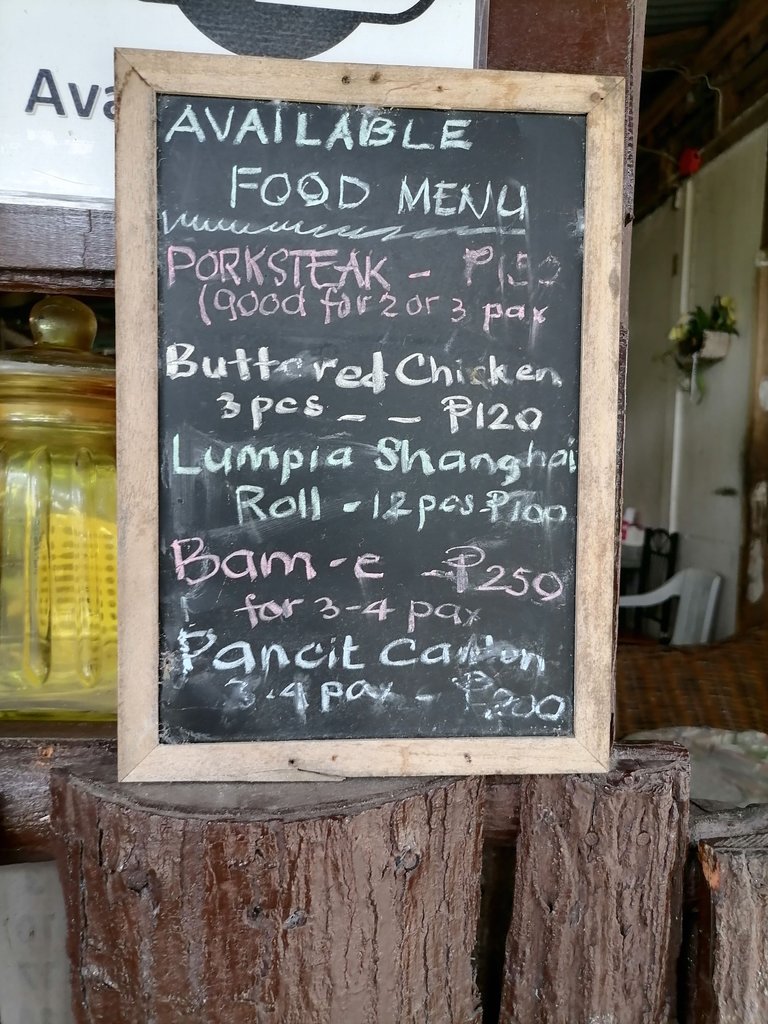 Ava
AVAILABLE
FOOD MENU
PORKSTEAK - ₱150
(good for 2 or 3 pax
Buttered Chicken
3 pcs - - ₱120
Lumpia Shanghai
Roll - 12 pcs-₱100
Bam-e - ₱250
for 3-4 pax
Pancit Canton
3-4 pax - ₱200